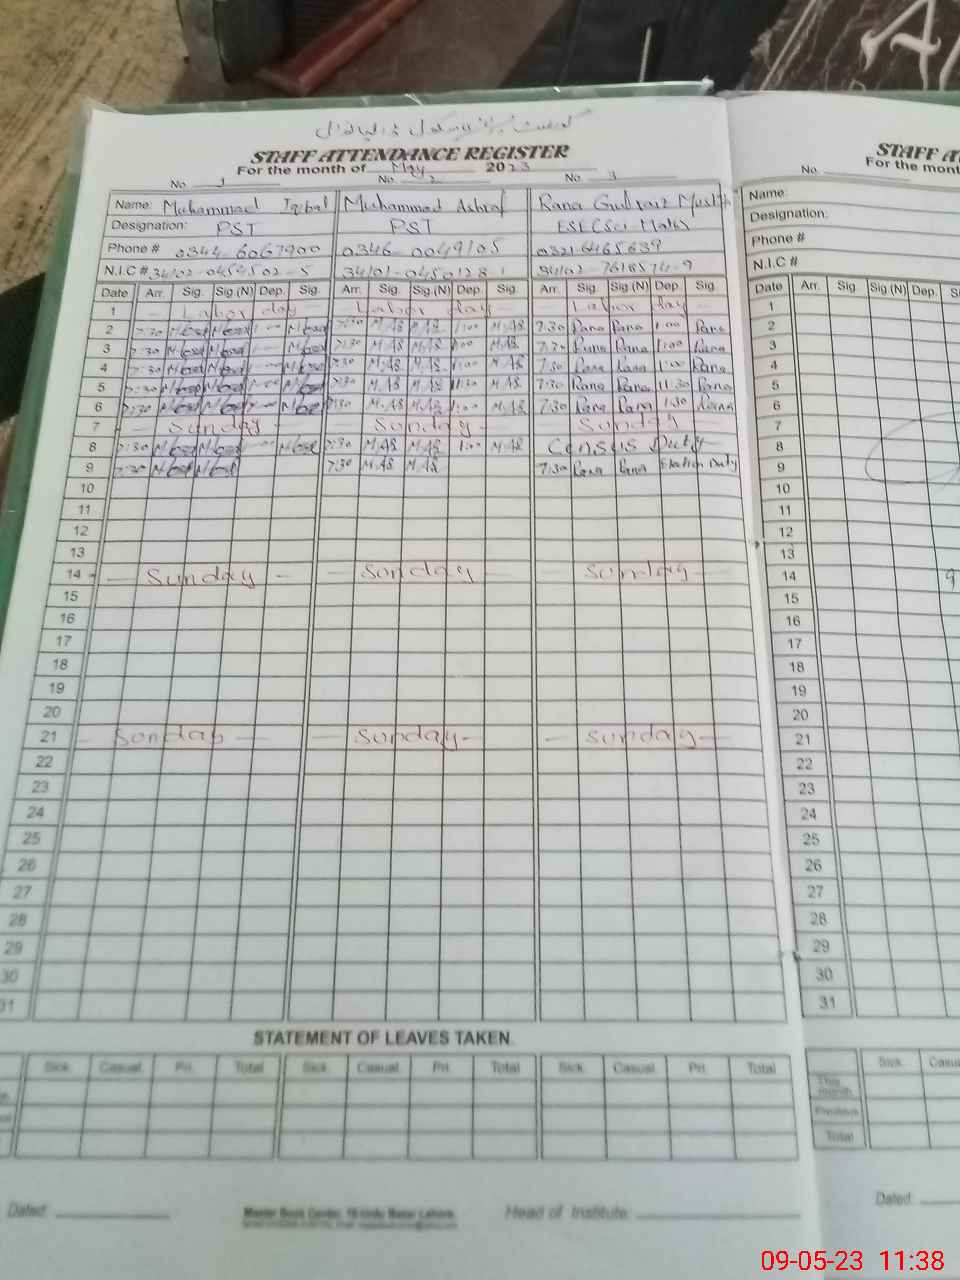 STAFF ATTENDANCE REGISTER
For the month of May 2023
No 1 No. 2 No. 3
Name: Muhammad Iqbal Muhammad Ashraf Rana
Designation: PST PST ESE(Sci-Math)
Phone # 0344-6067900 0346-0049105 0321-6465639
N.I.C # 34102-0454502-5 34101-0450128-1 34102-7618574-9
Date Arr. Sig. Sig.(N) Dep. Sig. Arr. Sig. Sig.(N) Dep. Sig. Arr. Sig. Sig.(N) Dep. Sig.
1 - Labor day - - Labor day - - Labor day -
2 7:30 1:00 7:30 M.AS M.AS 1:00 M.AS 7:30 Rana Rana 1:00 Rana
3 7:30 7:30 M.AS M.AS 1:00 M.AS 7:30 Rana Rana 1:00 Rana
4 7:30 7:30 M.AS M.AS 1:00 M.AS 7:30 Rana Rana 1:00 Rana
5 7:30 7:30 M.AS M.AS 11:30 M.AS 7:30 Rana Rana 11:30 Rana
6 7:30 7:30 M.AS M.AS 1:00 M.AS 7:30 Rana Rana 1:30 Rana
7 - Sunday - - Sunday - - Sunday -
8 7:30 7:30 M.AS M.AS 1:00 M.AS Census Duty
9 7:30 7:30 M.AS M.AS 7:30 Rana Rana Duty
10
11
12
13
14 - Sunday - - Sunday - - Sunday -
15
16
17
18
19
20
21 - Sunday - - Sunday - - Sunday -
22
23
24
25
26
27
28
29
30
31
STATEMENT OF LEAVES TAKEN.
Sick. Casual. Pri. Total Sick. Casual. Pri. Total Sick. Casual. Pri. Total
Dated: Master Book Center, Urdu Bazar Lahore. Head of Institute:
STAFF
For the
No.
Name:
Designation:
Phone #
N.I.C #
Date Arr. Sig. Sig.(N) Dep.
1
2
3
4
5
6
7
8
9
10
11
12
13
14 9
15
16
17
18
19
20
21
22
23
24
25
26
27
28
29
30
31
Sick.
This month
Previous
Total
Dated:
09-05-23 11:38